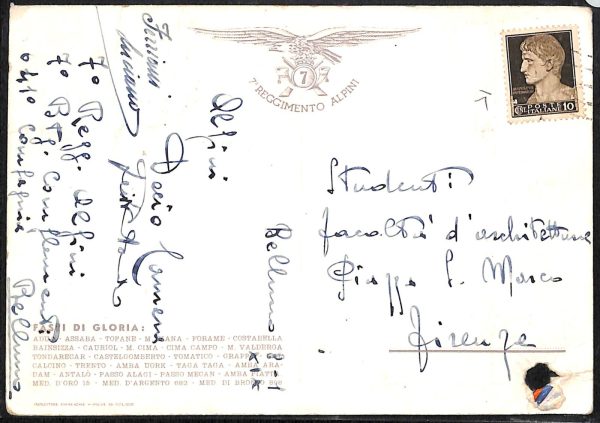 7
7º REGGIMENTO ALPINI
POSTE
ITALIANE
CENT. 10
Studenti
facoltà d'architettura
Piazza S. Marco
Firenze
Alpini
Belluno
XIX
Luciano
7º Regg. Alpini
7º Btg. Complementi
Compagnia
Belluno
FASTI DI GLORIA:
ASSABA - TOFANE - FORAME - COSTABELLA
BAINSIZZA - CAURIOL - M. CIMA - CIMA CAMPO - M. VALDEROA
TONDARECAR - CASTELGOMBERTO - TOMATICO - GRAPPA
CALCINO - TRENTO - AMBA UORK - TAGA TAGA - AMBA ARA-
DAM - ANTALÒ - PASSO ALAGI - PASSO MECAN - AMBA PIATTA
MED. D'ORO 15 - MED. D'ARGENTO 682 - MED. DI BRONZO 898